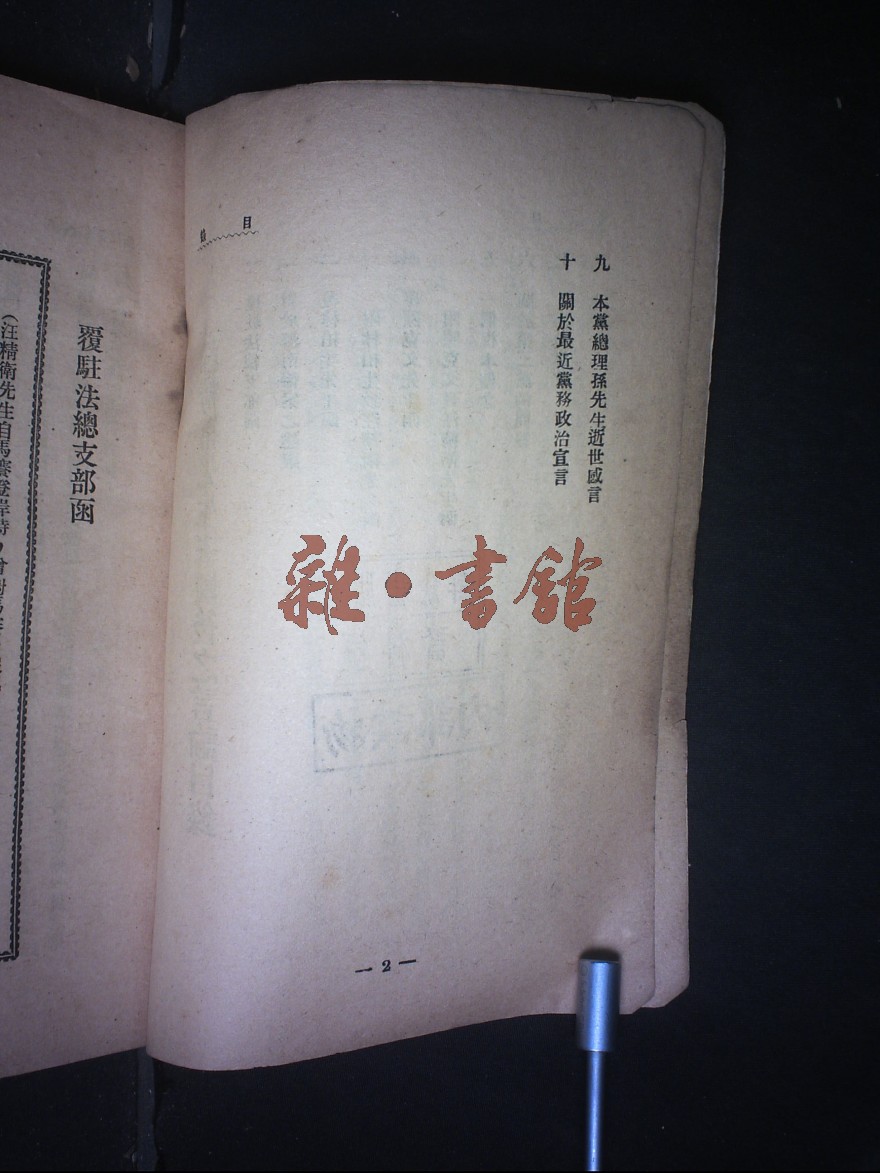 目錄
九　本黨總理孫先生逝世感言
十　關於最近黨務政治宣言
— 2 —
雜•書館
覆駐法總支部函
（汪精衛先生自馬賽登岸時